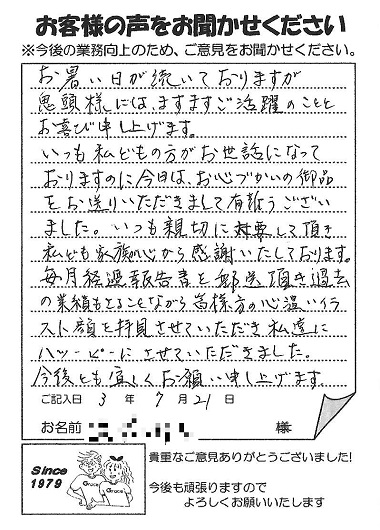 お客様の声をお聞かせください
※今後の業務向上のため、ご意見をお聞かせください。
お暑い日が続いておりますが
鬼頭様にはますますご活躍のことと
お喜び申し上げます。
いつも私どもの方がお世話になって
おりますのに今日は、お心づかいの御品
をお送りいただきまして有難うござい
ました。いつも親切に対応して頂き
私ども家族心から感謝いたしております。
毎月経過報告書を郵送頂き過去
の業績もさることながら皆様方の心温いイラ
スト顔を拝見させていただき私達に
ハッピーにさせていただきました。
今後とも宜しくお願い申し上げます。
ご記入日 3 年 7 月 21 日
お名前 様
Since
1979
Grace
Grace
貴重なご意見ありがとうございました!
今後も頑張りますので
よろしくお願いいたします